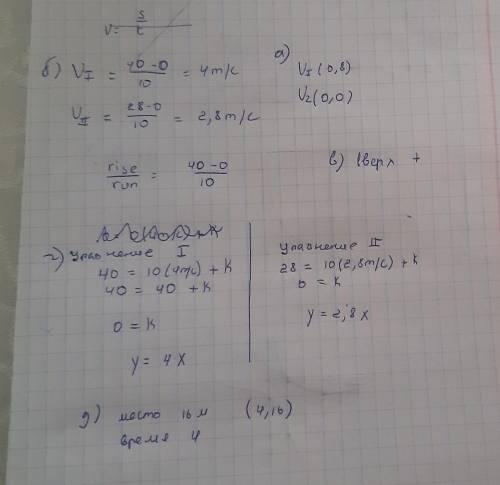 V = S/t
б) V_I = 40-0/10 = 4 m/c
V_II = 28-0/10 = 2,8 m/c
rise/run = 40-0/10
а)
V_I (0,8)
V_2 (0,0)
в) вверх +
г) Уравнение I
40 = 10(4m/c) + K
40 = 40 + K
0 = K
y = 4x
Уравнение II
28 = 10(2,8m/c) + K
0 = K
y = 2,8x
д) место 16 м (4,16)
время 4